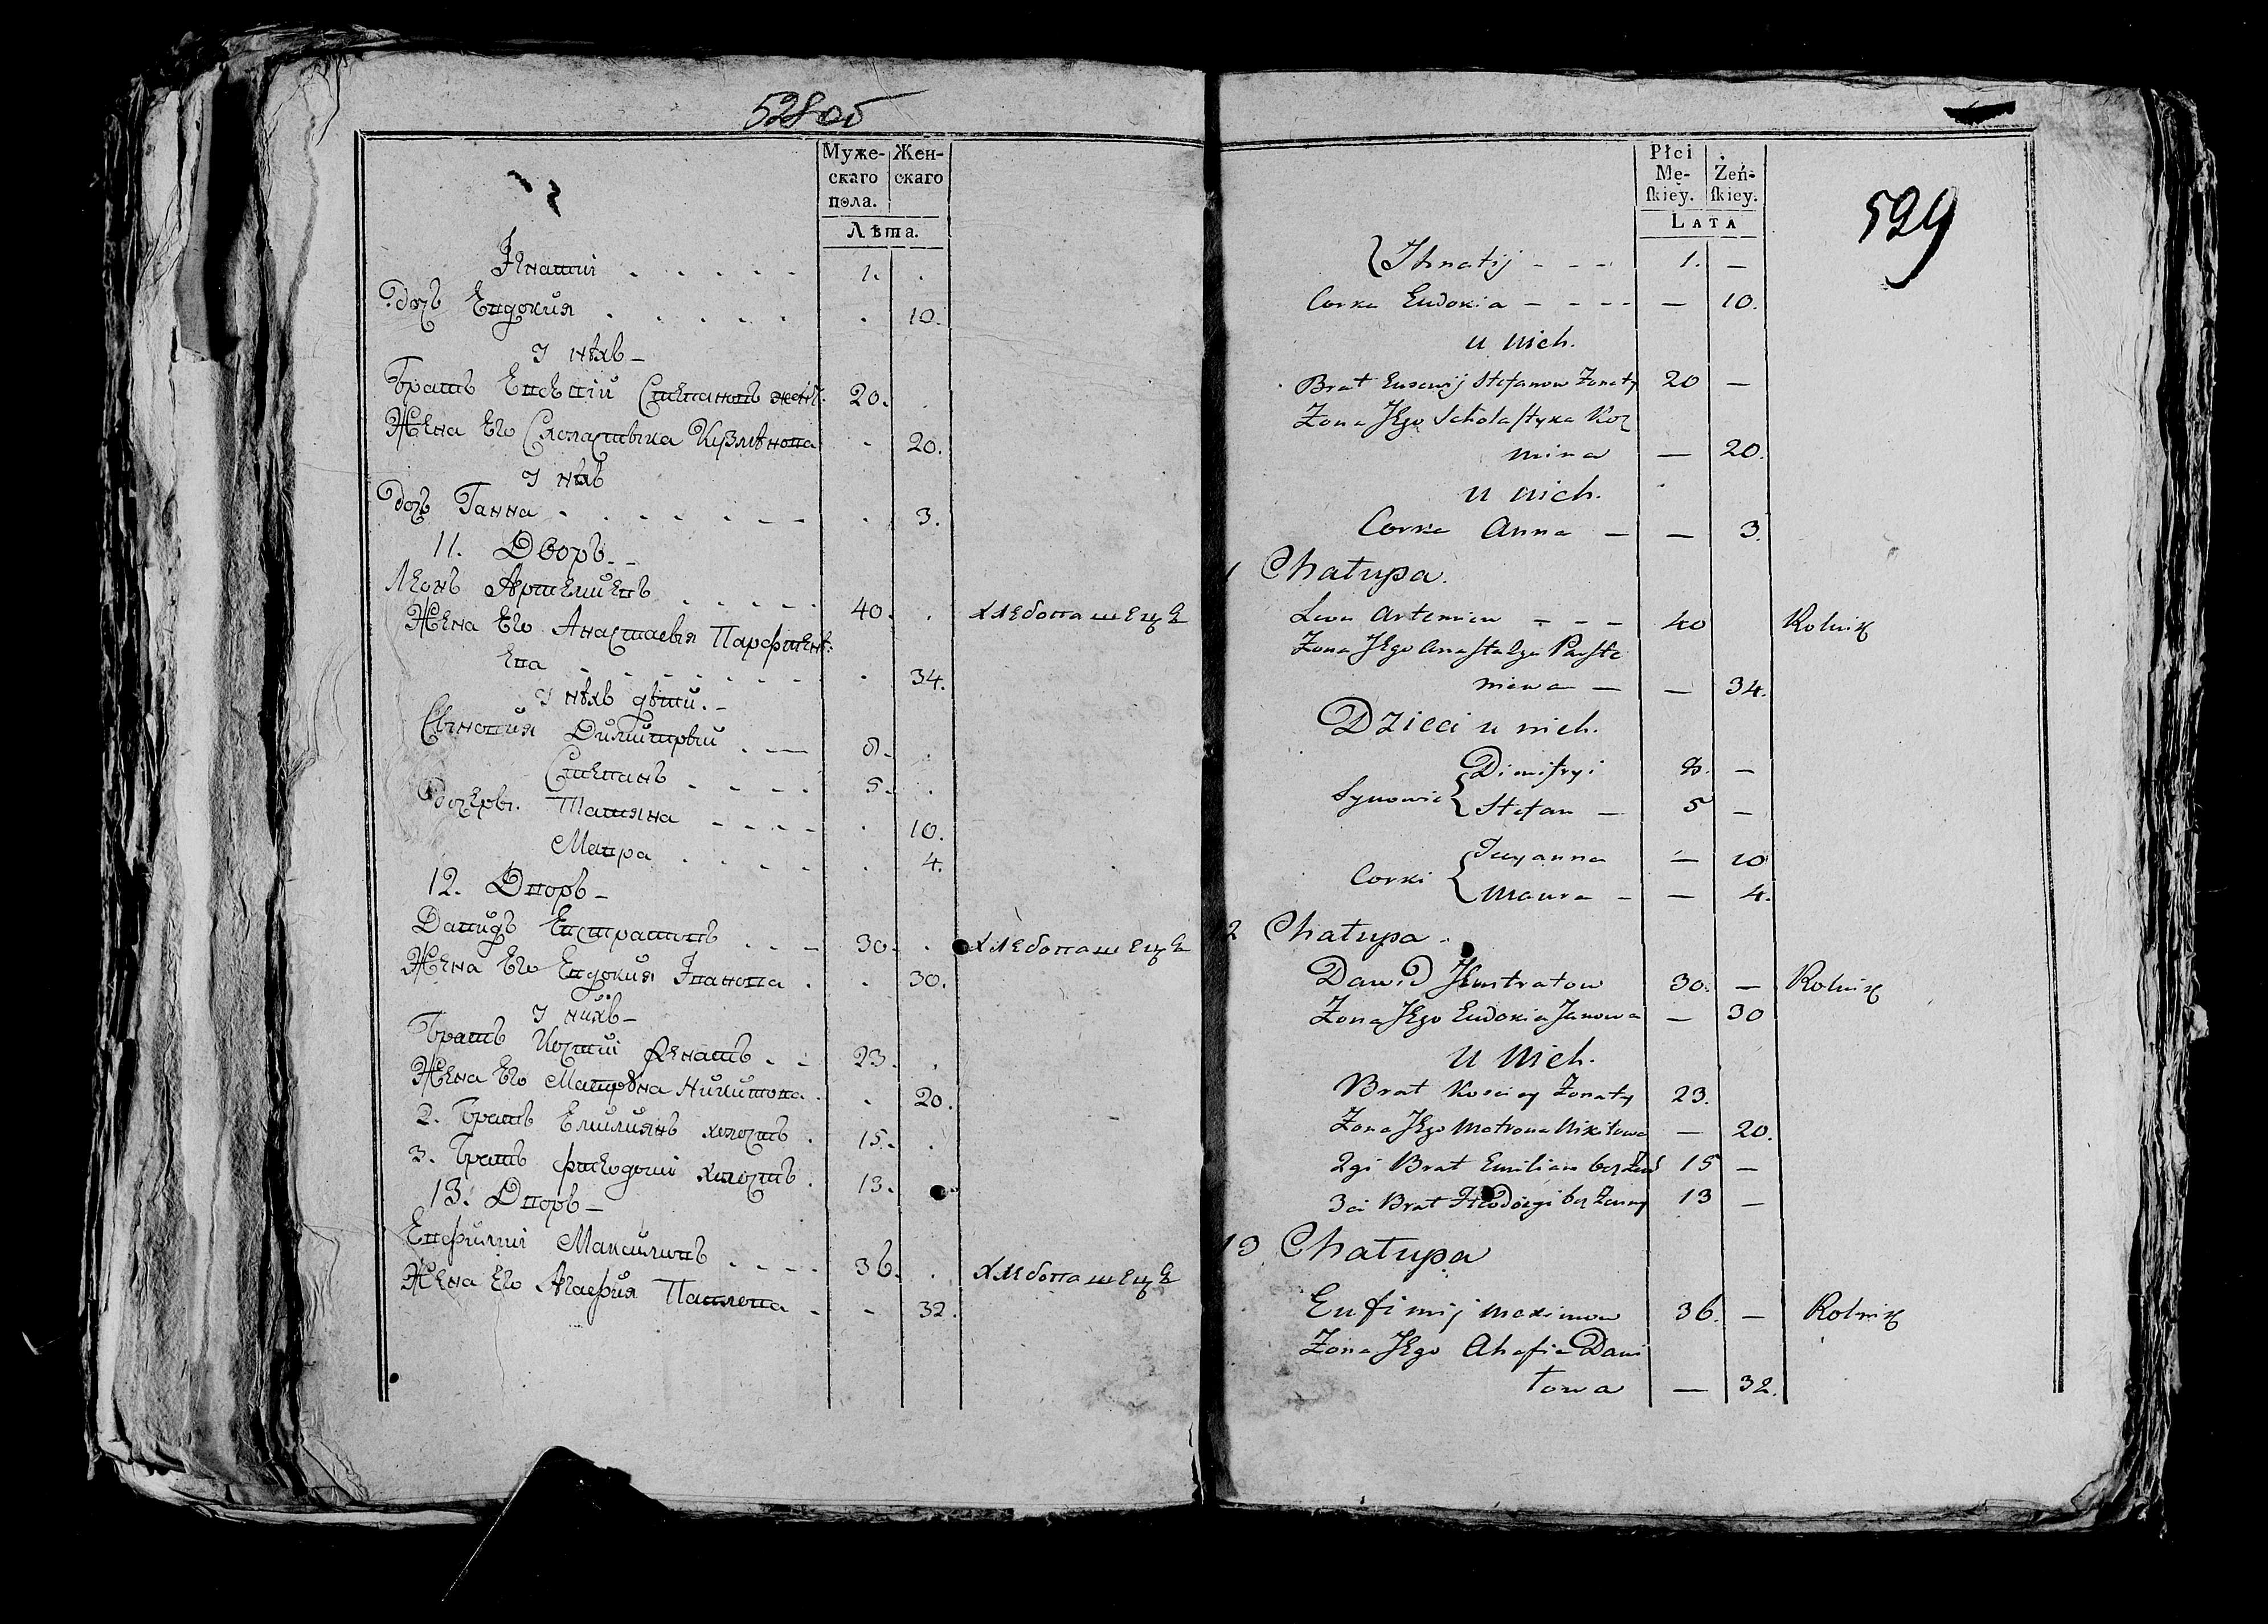 528об
Муже- Жен-
скаго скаго
пола.
Лѣта.
Игнатій . . . . . 1. .
Дочь Евдокия . . . . . . 10.
У нихъ –
Братъ Евсевій Степановъ жен: 20. .
Жена Его Схоластыка Кузмѣнова . 20.
У нихъ
Дочь Ганна . . . . . . . 3.
11. Дворъ. –
Леонъ Артемиевъ . . . . . 40. . хлебопашецъ
Жена Его Анастасыя Парфиен:
ева . . . . . . . 34.
У нихъ дѣти. –
Сыновия Димитрый . — 8. .
Степанъ . . . . 5. .
Дочеры. Татияна . . . . . 10.
Мавра . . . . . 4.
12. Дворъ –
Давидъ Евстратовъ . . . 30. . хлебопашецъ
Жена Его Евдокия Іванова . . 30.
У нихъ –
Братъ Костій женатъ . . 23. .
Жена Его Матрона Никитова . . 20.
2. Братъ Емилиянъ холостъ . 15. .
3. Братъ фтеодоsий холостъ . 13. .
13. Дворъ –
Евфимій Максимовъ . . . . 36. . хлебопашецъ
Жена Его Агафия Павлова . . 32.
529
Płci
Mę- Żeń-
ſkiey. ſkiey.
LATA
Ihnatij – – – 1. –
Corka Eudokia – – – – – 10.
u nich.
Brat Eusewij Stefanow Żonaty 20 –
Żona Jego Scholaſtyka Koz
mina – 20.
u nich.
Corka Anna – – 3.
1 Chałupa.
Leon Artemiew – – – 40 Rolnik
Żona Jego Anaſtazya Parfe
niewa – – 34.
Dzieci u nich.
Synowie Dimitryi 8. –
Stefan – 5 –
Corki Tacyanna – 10
Maura – – 4.
2 Chałupa –
Dawid Jewstratow 30. – Rolnik
Żona Jego Eudokia Janowa – 30
u Nich.
Brat Kosciey Żonaty 23.
Żona Jego Matrona Nikitowa – 20.
2gi Brat Emilian bez Żony 15 –
3ci Brat Fteodozyi bez Żenny 13 –
13 Chałupa
Eufimij Maximow 36. – Rolnik
Żona Jego Ahafia Dawi
łowa – 32.